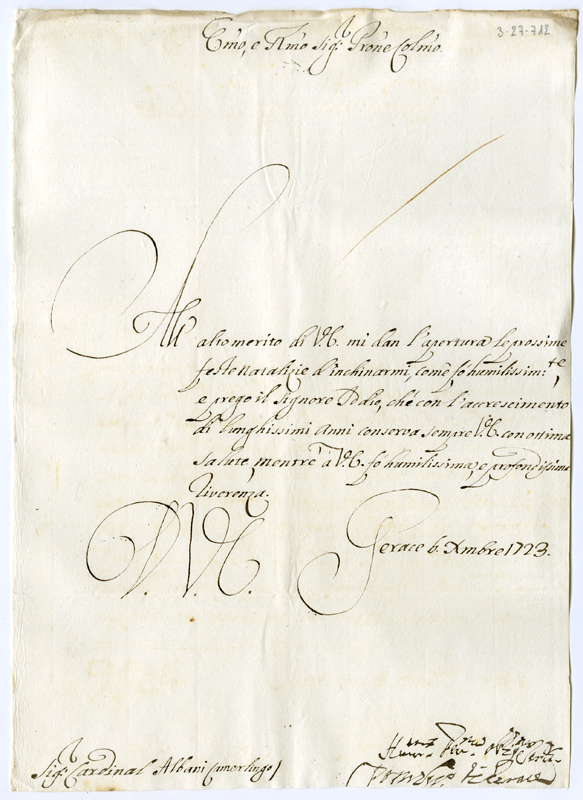 3-27-712
Emo, e Rmo Sigr Prone Colmo.
All' alto merito di V.E. mi dan l'apertura le prossime
feste natalizie d'inchinarmi, come fo humilissim:te,
e prego il Signore Iddio, che con l'accrescimento
di lunghissimi Anni conserva sempre V.E. con ottima
salute, mentre à V.E. fo humilissima, e profondissima
riverenza.
D. V. E. Gerace 6. Xmbre 1723.
Sigr Cardinal Albani Camerlingo